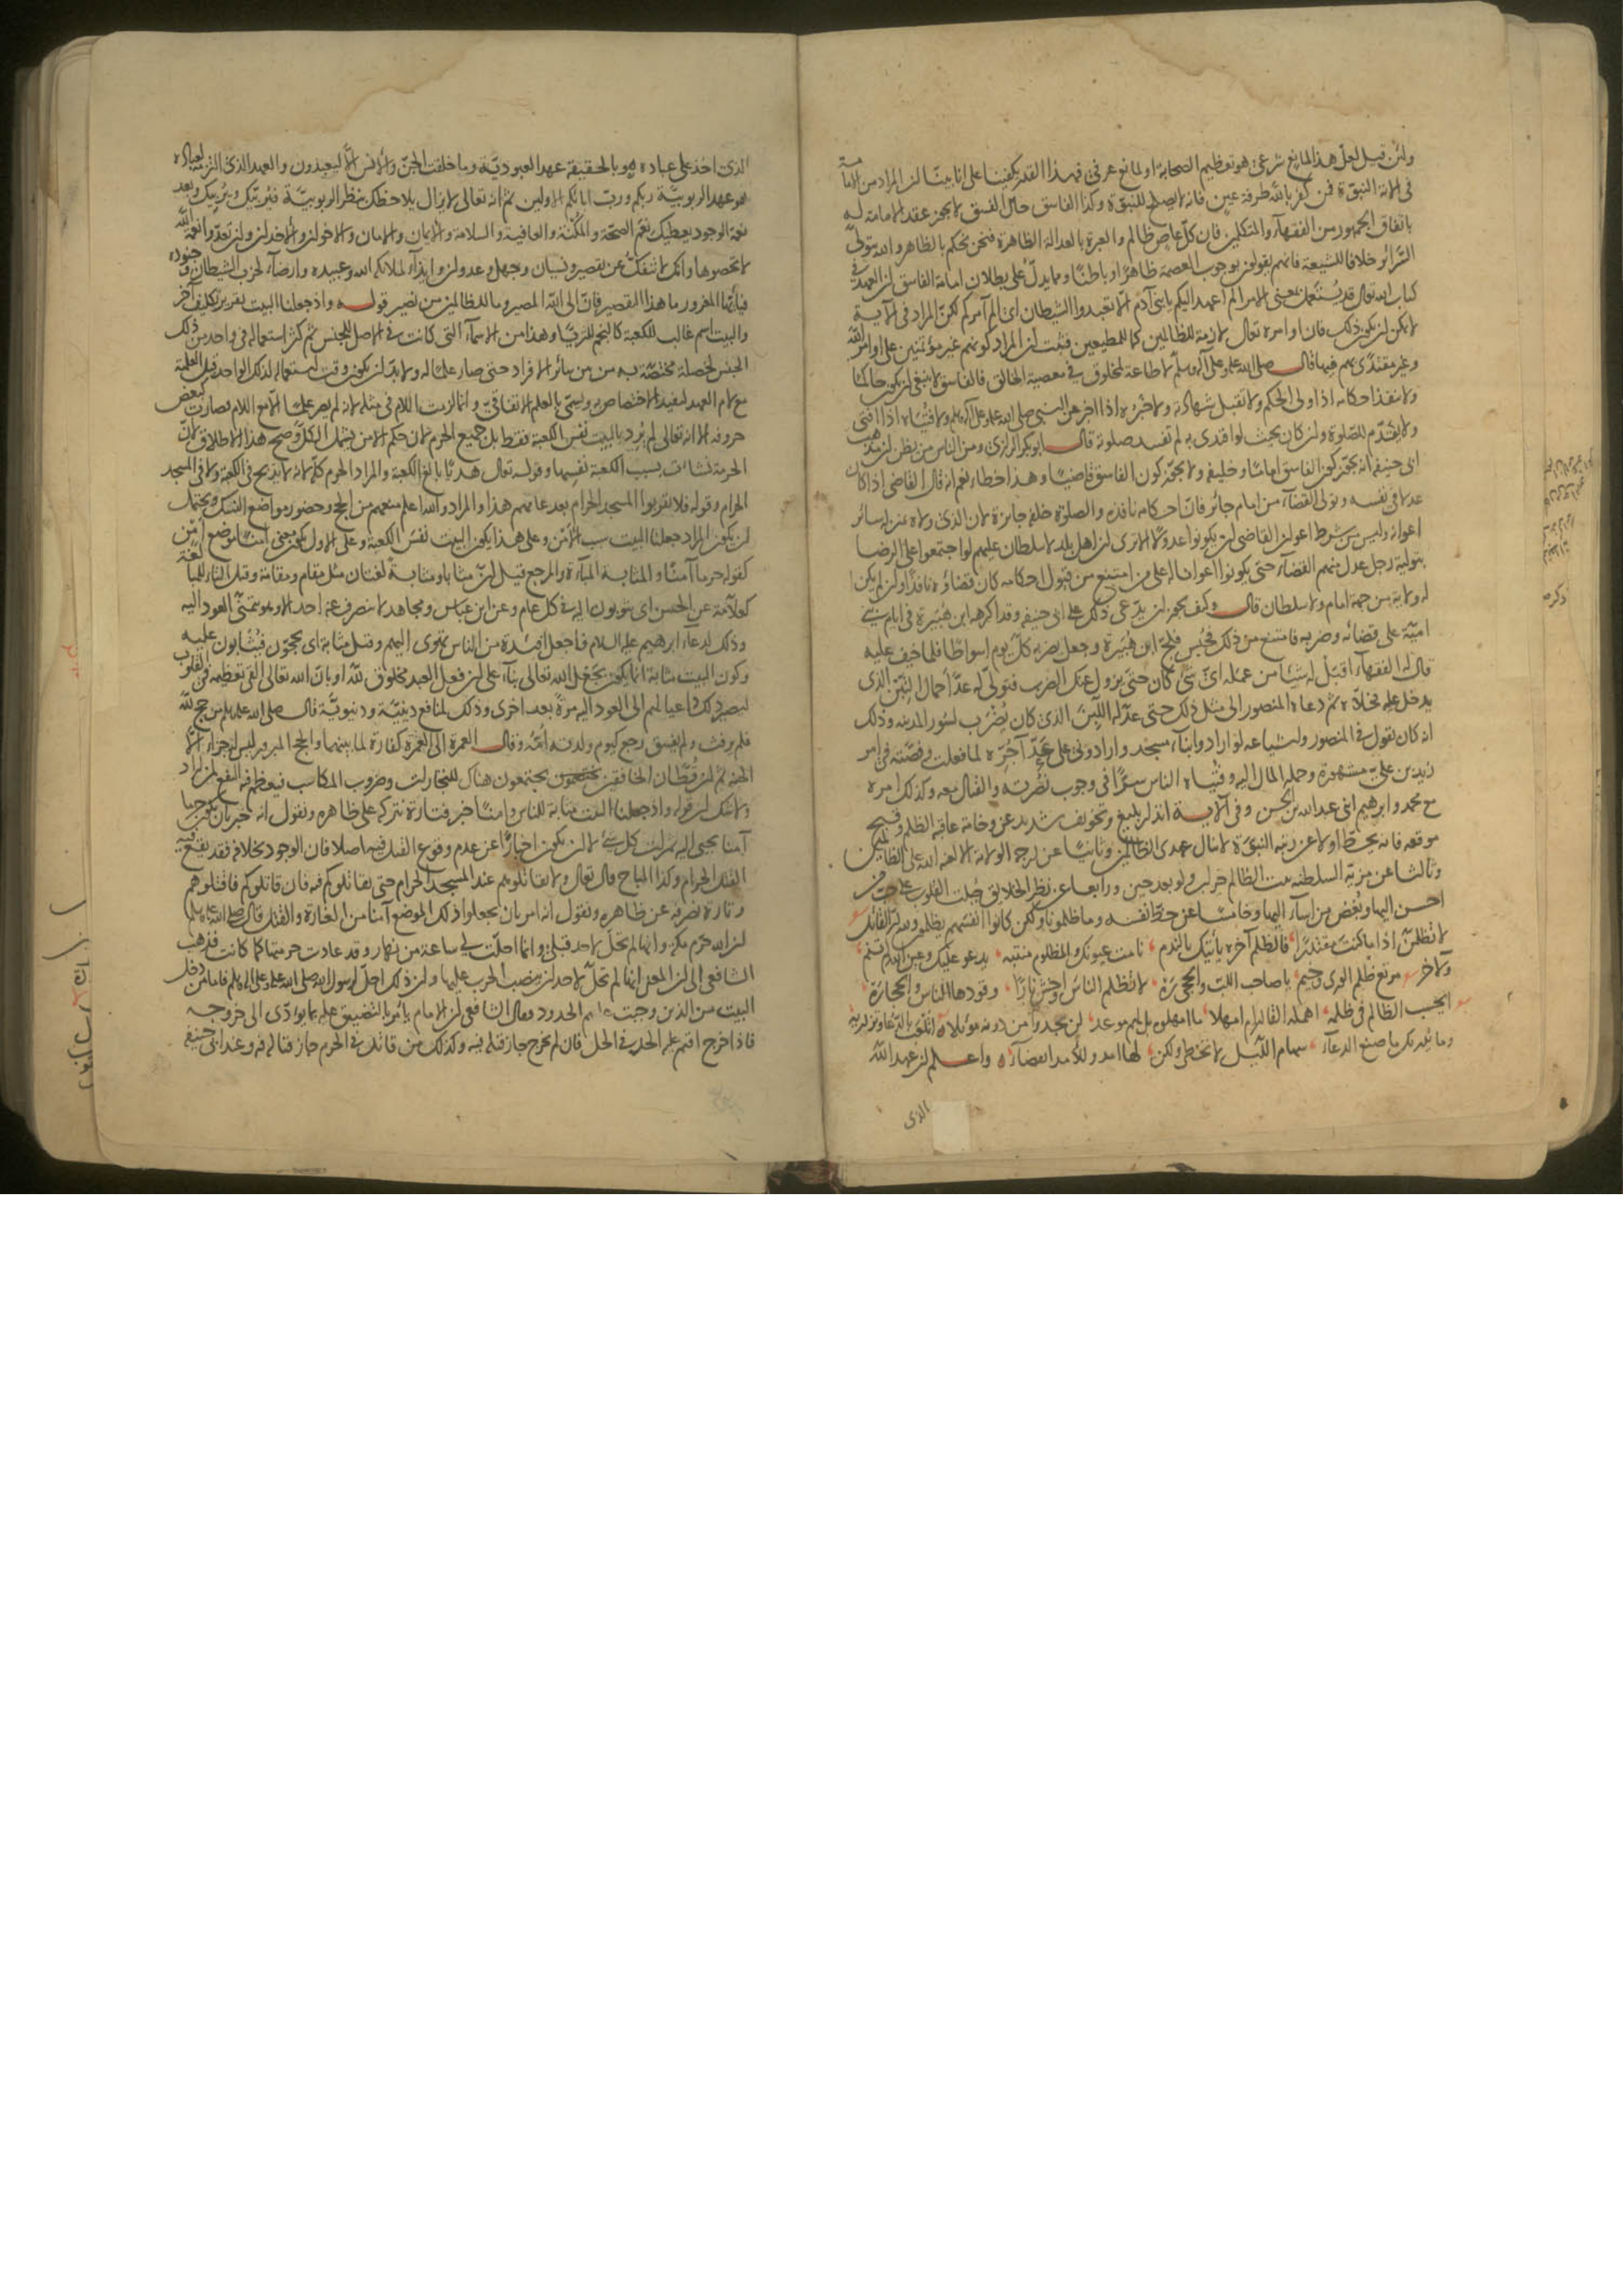 ولئن قيل لعل هذا المانع شرعي هو تعظيم الصحابة او لمانع عرفي فهذا القدر يكفينا على انا بينا ان المراد من الامامة
في الآية النبوة فمن كفر بالله طرفة عين فانه لا يصلح للنبوة وكذا الفاسق حال الفسق لا يجوز عقد الامامة له
باتفاق الجمهور من الفقهاء والمتكلمين فان كل عاص ظالم والعبرة بالعدالة الظاهرة فنحن نحكم بالظاهر والله يتولى
السرائر خلافا للشيعة فانهم يقولون بوجوب العصمة ظاهرا وباطنا ومما يدل على بطلان امامة الفاسق ان العهد في
كتاب الله تعالى قد يستعمل بمعنى الامر الم اعهد اليكم يا بني آدم الا تعبدوا الشيطان اي الم آمركم لكن المراد في الآية
لا يكون ذلك فان اوامره تعالى لازمة للظالمين كما للمطيعين فثبت ان المراد كونهم غير مؤتمنين على اوامر الله
وغير مقتدى بهم فيها قال صلى الله عليه وعلى آله وسلم لا طاعة لمخلوق في معصية الخالق فالفاسق لا ينبغي ان يكون حاكما
ولا تنفذ احكامه اذا ولي الحكم ولا تقبل شهادته ولا خبره اذا اخبر عن النبي صلى الله عليه وعلى آله وسلم ولا فتياه اذا افتى
ولا يقدم للصلوة وان كان بحيث لو اقتدى به لم تفسد صلوته قال ابو بكر الرازي ومن الناس من يظن ان مذهب
ابي حنيفة انه يجوز كون الفاسق اماما وخليفة ولا يجوز كون الفاسق قاضيا وهذا خطأ نعم انه قال القاضي اذا كان
عدلا في نفسه وتولى القضاء من امام جائر فان احكامه نافذة والصلوة خلفه جائزة لان الذي ولاه بمنزلة سائر
اعوانه وليس من شرط اعوان القاضي ان يكونوا عدولا الا ترى ان اهل بلد لا سلطان عليهم لو اجتمعوا على الرضا
بتولية رجل عدل منهم القضاء حتى يكونوا اعوانا له على من امتنع من قبول احكامه كان قضاؤه نافذا وان لم يكن
له ولاية من جهة امام ولا سلطان قال وكيف يجوز ان يدعى ذلك على ابي حنيفة وقد اكرهه ابن هبيرة في ايام بني
امية على قضائه وضربه فامتنع من ذلك فحبس فلج ابن هبيرة وجعل يضربه كل يوم اسواطا فلما خيف عليه
قال له الفقهاء اقبل له شيئا من عمله اي شيء كان حتى يزول عنك الضرب فتولى له عد احمال التبن الذي
يدخل عليه فخلاه ثم دعاه المنصور الى مثل ذلك حتى عد له اللبن الذي كان يضرب لسور المدينة وذلك
انه كان يقول في المنصور واشياعه لو ارادوا بناء مسجد وارادوني على عد آجره لما فعلت وقصته في امر
زيد بن علي مشهورة وحمله المال اليه وفتياه الناس سرا في وجوب نصرته والقتال معه وكذلك امره
مع محمد وابرهيم ابني عبد الله بن الحسن وفي الآية انذار بليغ وتخويف شديد عن وخامة عاقبة الظلم وقبيح
موقعه فانه يحط اولا عن رتبة النبوة لا ينال عهدي الظالمين وثانيا عن درجة الولاية الا لعنة الله على الظالمين
وثالثا عن مرتبة السلطنة بيت الظالم خراب ولو بعد حين ورابعا عن نظر الخلايق جبلت القلوب على حب من
احسن اليها وبغض من اساء اليها وخامسا عن حظ نفسه وما ظلمونا ولكن كانوا انفسهم يظلمون ولله در القائل
لا تظلمن اذا ما كنت مقتدرا فالظلم آخره يأتيك بالندم نامت عيونك والمظلوم منتبه يدعو عليك وعين الله لم تنم
ولآخر مرتع ظلم الورى وخيم يا صاحب اللب والحجى ره لا تظلم الناس واخش نارا وقودها الناس والحجارة
ايحسب الظالم في ظلمه اهمله القادر ام امهلا ما امهلوه بل لهم موعد لن يجدوا من دونه موئلا اتلعب بالدعاء وتزدريه
وما يدريك ما صنع الدعاء سهام الليل لا تخطي ولكن لها امد وللأمد انقضاء واعلم ان عهد الله
الذي
الذي اخذ على عباده هو بالحقيقة عهد العبودية وما خلقت الجن والانس الا ليعبدون والعهد الذي التزمه لعباده
هو عهد الربوبية ربكم ورب ابائكم الاولين ثم انه تعالى لا يزال يلاحظك بنظر الربوبية فيربيك ويربيك وبعد
نعمة الوجود يعطيك نعم الصحة والمكنة والعافية والسلامة والايمان والامان والاخوان والاخدان وان تعدوا نعمة الله
لا تحصوها وانك لا تنفك عن تقصير ونسيان وجهل وعدوان وايذاء لملائكة الله وعبيده وارضاء لحزب الشيطان وجنوده
فيا ايها المغرور ما هذا التقصير فان الى الله المصير وما للظالمين من نصير قوله واذ جعلنا البيت تقرير تكليف آخر
والبيت اسم غالب للكعبة كالنجم للثريا وهذا من الاسماء التي كانت في الاصل للجنس ثم كثر استعماله في واحد من ذلك
الجنس لخصلة مختصة به من بين سائر الافراد حتى صار علما له ولا بد ان يكون وقت استعماله لذلك الواحد قبل العلمية
مع لام العهد ليفيد الاختصاص به ويسمى بالعلم الاتفاقي وانما لزمت اللام في مثله لانه لم يصر علما الا مع اللام فصارت كبعض
حروفه الا انه تعالى لم يرد بالبيت نفس الكعبة فقط بل جميع الحرم لان حكم الامن يشمل الكل وصح هذا الاطلاق لان
الحرمة نشأت بسبب الكعبة نفسها وقوله تعالى هديا بالغ الكعبة والمراد الحرم كله لانه لا يذبح في الكعبة ولا في المسجد
الحرام وقوله فلا يقربوا المسجد الحرام بعد عامهم هذا والمراد والله اعلم منعهم من الحج وحضور مواضع النسك ويحتمل
ان يكون المراد جعلنا البيت سبب الأمن وعلى هذا يكون البيت نفس الكعبة وعلى الاول يكون بمعنى آمنا موضع أمن
كقوله حرما آمنا والمثابة المباءة والمرجع قيل ان مثابا ومثابة لغتان مثل مقام ومقامة وقيل التاء للمبالغة
كعلامة عن الحسن اي يثوبون اليه في كل عام وعن ابن عباس ومجاهد لا ينصرف عنه احد الا وهو يتمنى العود اليه
وذلك لدعاء ابرهيم عليه السلام فاجعل افئدة من الناس تهوى اليهم وقيل مثابة اي يحجون فيثابون عليه
وكون البيت مثابة انما يكون بجعل الله تعالى بناء على ان فعل العبد مخلوق لله او بان الله تعالى القى تعظيمه في القلوب
ليصير ذلك داعيا لهم الى العود اليه مرة بعد اخرى وذلك لمنافع دينية ودنيوية قال صلى الله عليه وسلم من حج لله
فلم يرفث ولم يفسق رجع كيوم ولدته امه وقال العمرة الى العمرة كفارة لما بينهما والحج المبرور ليس له جزاء الا
الجنة ثم ان قطان الخافقين يجتمعون هناك للتجارات وضروب المكاسب فيعظم فيه النفع لمن اراد
ولا شك ان قوله واذ جعلنا البيت مثابة للناس وامنا خبر فتارة نتركه على ظاهره ونقول انه خبر بان يكون حرما
آمنا يجبى اليه ثمرات كل شيء لا ان يكون اخبارا عن عدم وقوع القتل فيه اصلا فان الوجود بخلافه فقد يقع فيه
القتل الحرام وكذا المباح قال تعالى ولا تقاتلوهم عند المسجد الحرام حتى يقاتلوكم فيه فان قاتلوكم فاقتلوهم
وتارة نصرفه عن ظاهره ونقول انه امر بان يجعلوا ذلك الموضع آمنا من الغارة والقتل قال صلى الله عليه وسلم
ان الله حرم مكة وانها لم تحل لاحد قبلي وانما احلت لي ساعة من نهار وقد عادت حرمتها كما كانت فذهب
الشافعي الى ان المعنى انها لم تحل لاحد ان ينصب الحرب عليها وان ذلك احل لرسول الله صلى الله عليه وعلى آله وسلم فاما من دخل
البيت من الذين وجبت عليهم الحدود فقال الشافعي ان الامام يأمر بالتضييق عليه بما يؤدي الى خروجه
فاذا خرج اقيم عليه الحد في الحل فان لم يخرج جاز قتله فيه وكذلك من قاتل في الحرم جاز قتاله فيه وعند ابي حنيفة